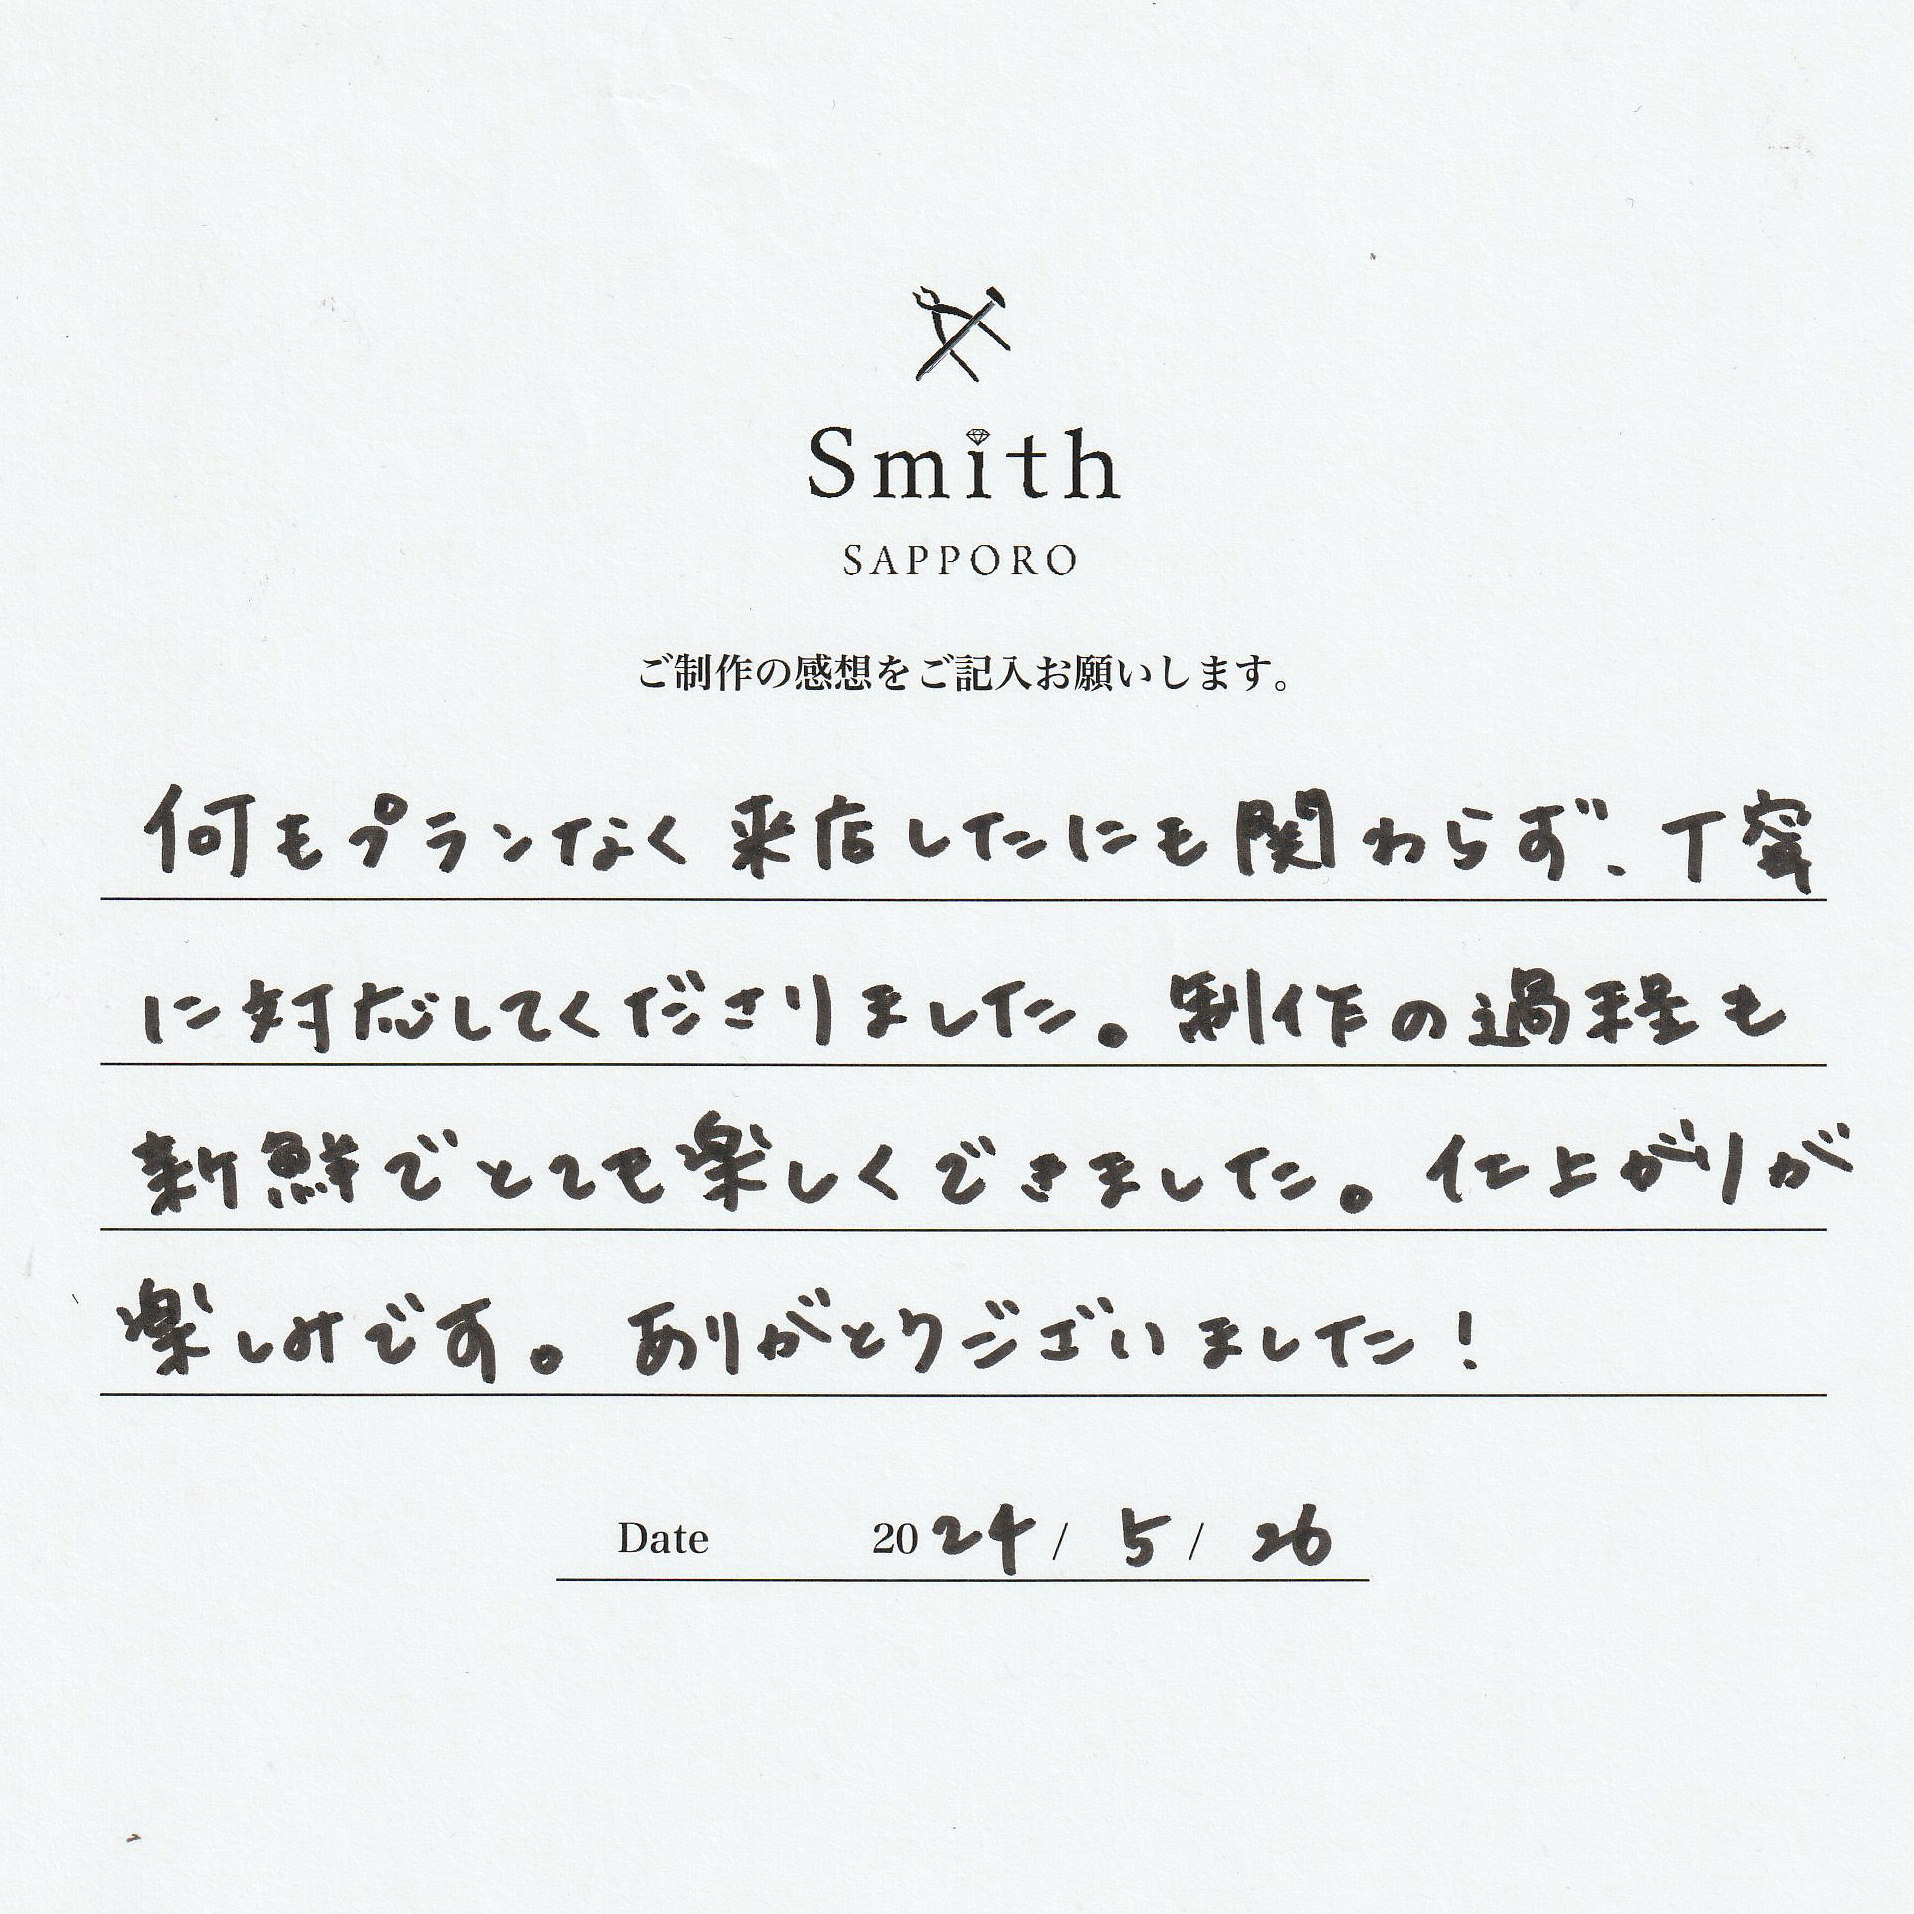 Smith
SAPPORO
ご制作の感想をご記入お願いします。
何もプランなく来店したにも関わらず、丁寧
に対応してくださりました。制作の過程も
新鮮でとても楽しくできました。仕上がりが
楽しみです。ありがとうございました！
Date 2024 / 5 / 26